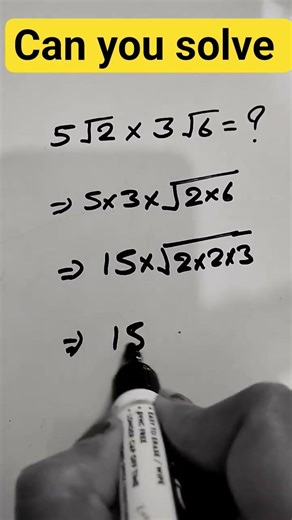 Can you solve
5√2 × 3√6 = ?
⇒ 5×3×√2×6
⇒ 15×√2×2×3
⇒ 15
EASY TO ERASE / WIPE